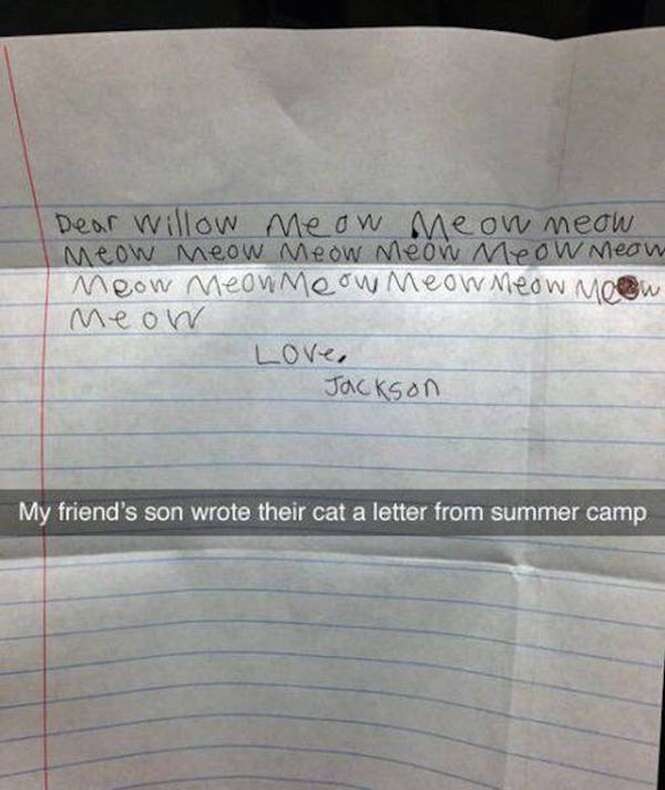 Dear Willow Meow Meow meow
Meow Meow Meow Meow Meow Meow
Meow Meow Meow Meow Meow Meow
Meow
Love,
Jackson
My friend's son wrote their cat a letter from summer camp